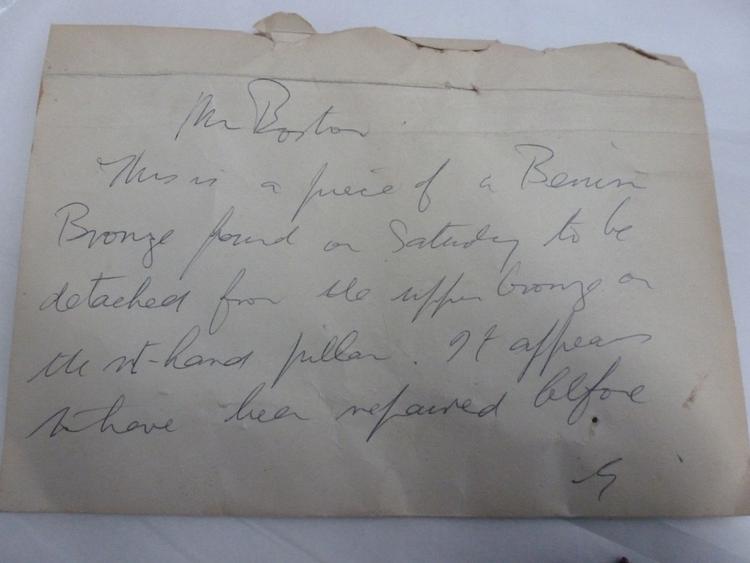 Mr Boston
This is a piece of a Benin
Bronze found on Saturday to be
detached from the upper bronze on
the rt-hand pillar. It appears
to have been repaired before